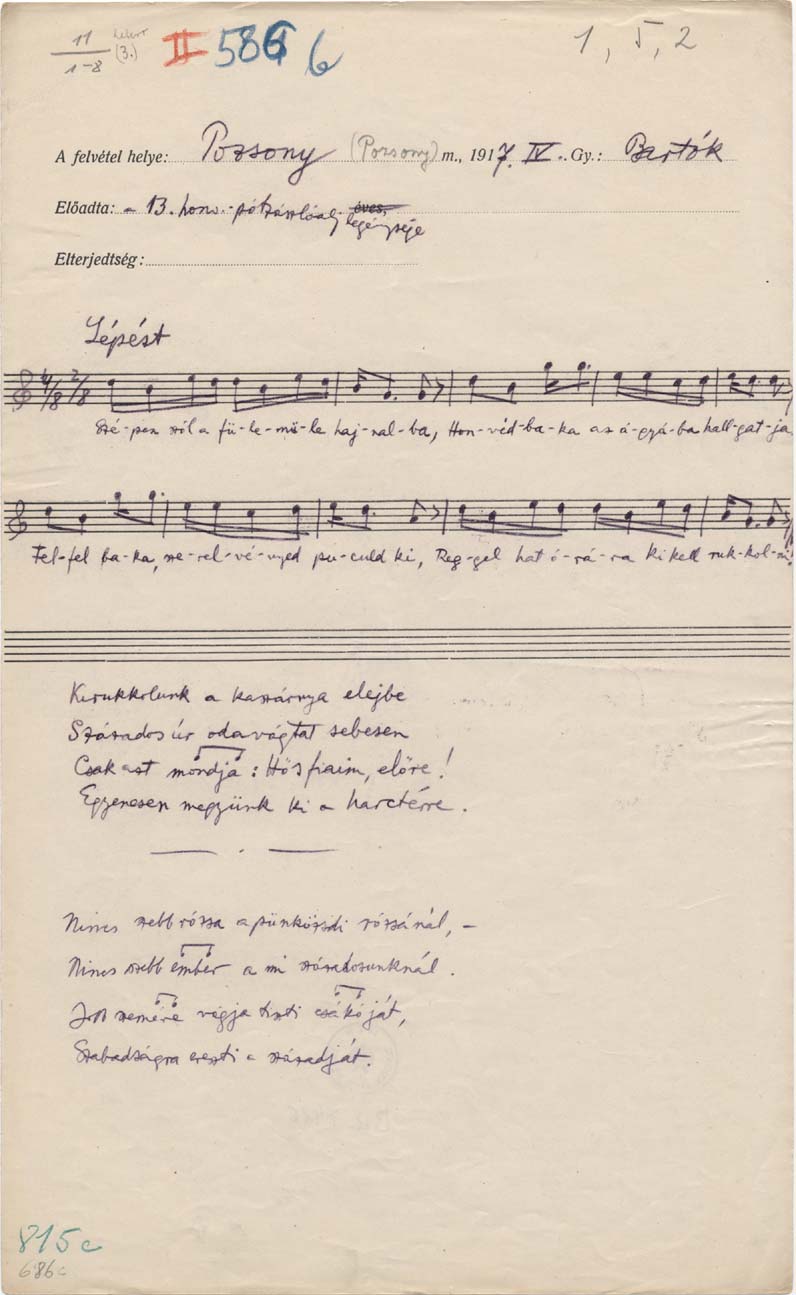 11
1-8
(3.)
II 586 b
1, 5, 2
A felvétel helye: Pozsony (Pozsony) m., 1917. IV. Gy.: Bartók
Előadta: a 13. honv. pótzászlóalj éves,
legénysége
Elterjedtség:
Lépést
4/8 2/8
Szé-pen szól a fü-le-mü-le haj-nal-ba, Hon-véd-ba-ka az á-gyá-ba hall-gat-ja
Fel-fel ba-ka, sze-rel-vé-nyed pu-culd ki, Reg-gel hat ó-rá-ra ki kell ruk-kol-ni!
Kirukkolunk a kaszárnya elejbe
Százados úr odavágtat sebesen
Csak azt mondja: Hős fiaim, előre!
Egyenesen megyünk ki a harctérre.
Nincs szebb rózsa a pünkösdi rózsánál, –
Nincs szebb ember a mi századosunknál.
szemére vágja tiszti csákóját,
Szabadságra ereszti a századját.
815c
686c